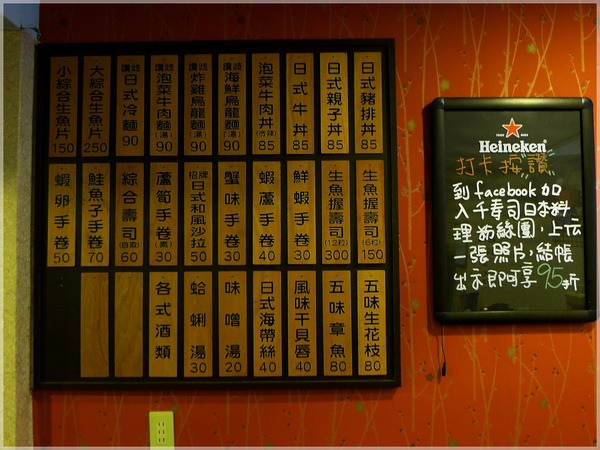 日式豬排丼 85
日式親子丼 85
日式牛丼 85
泡菜牛肉丼(微辣) 85
讚岐海鮮烏龍麵(湯) 90
讚岐炸雞烏龍麵(湯) 90
讚岐泡菜牛肉麵(湯) 90
讚岐日式冷麵 90
大綜合生魚片 250
小綜合生魚片 150
生魚握壽司(6粒) 150
生魚握壽司(12粒) 300
鮮蝦手卷 30
蝦蘆手卷 40
蟹味手卷 30
招牌日式和風沙拉 50
蘆筍手卷(素) 30
綜合壽司(自取) 60
鮭魚子手卷 70
蝦卵手卷 50
五味生花枝 80
五味章魚 80
風味干貝唇 40
日式海帶絲 40
味噌湯 20
蛤蜊湯 30
各式酒類
Heineken
打卡按讚
到facebook加
入千壽司日本料
理粉絲團,上傳
一張照片,結帳
出示即可享95折